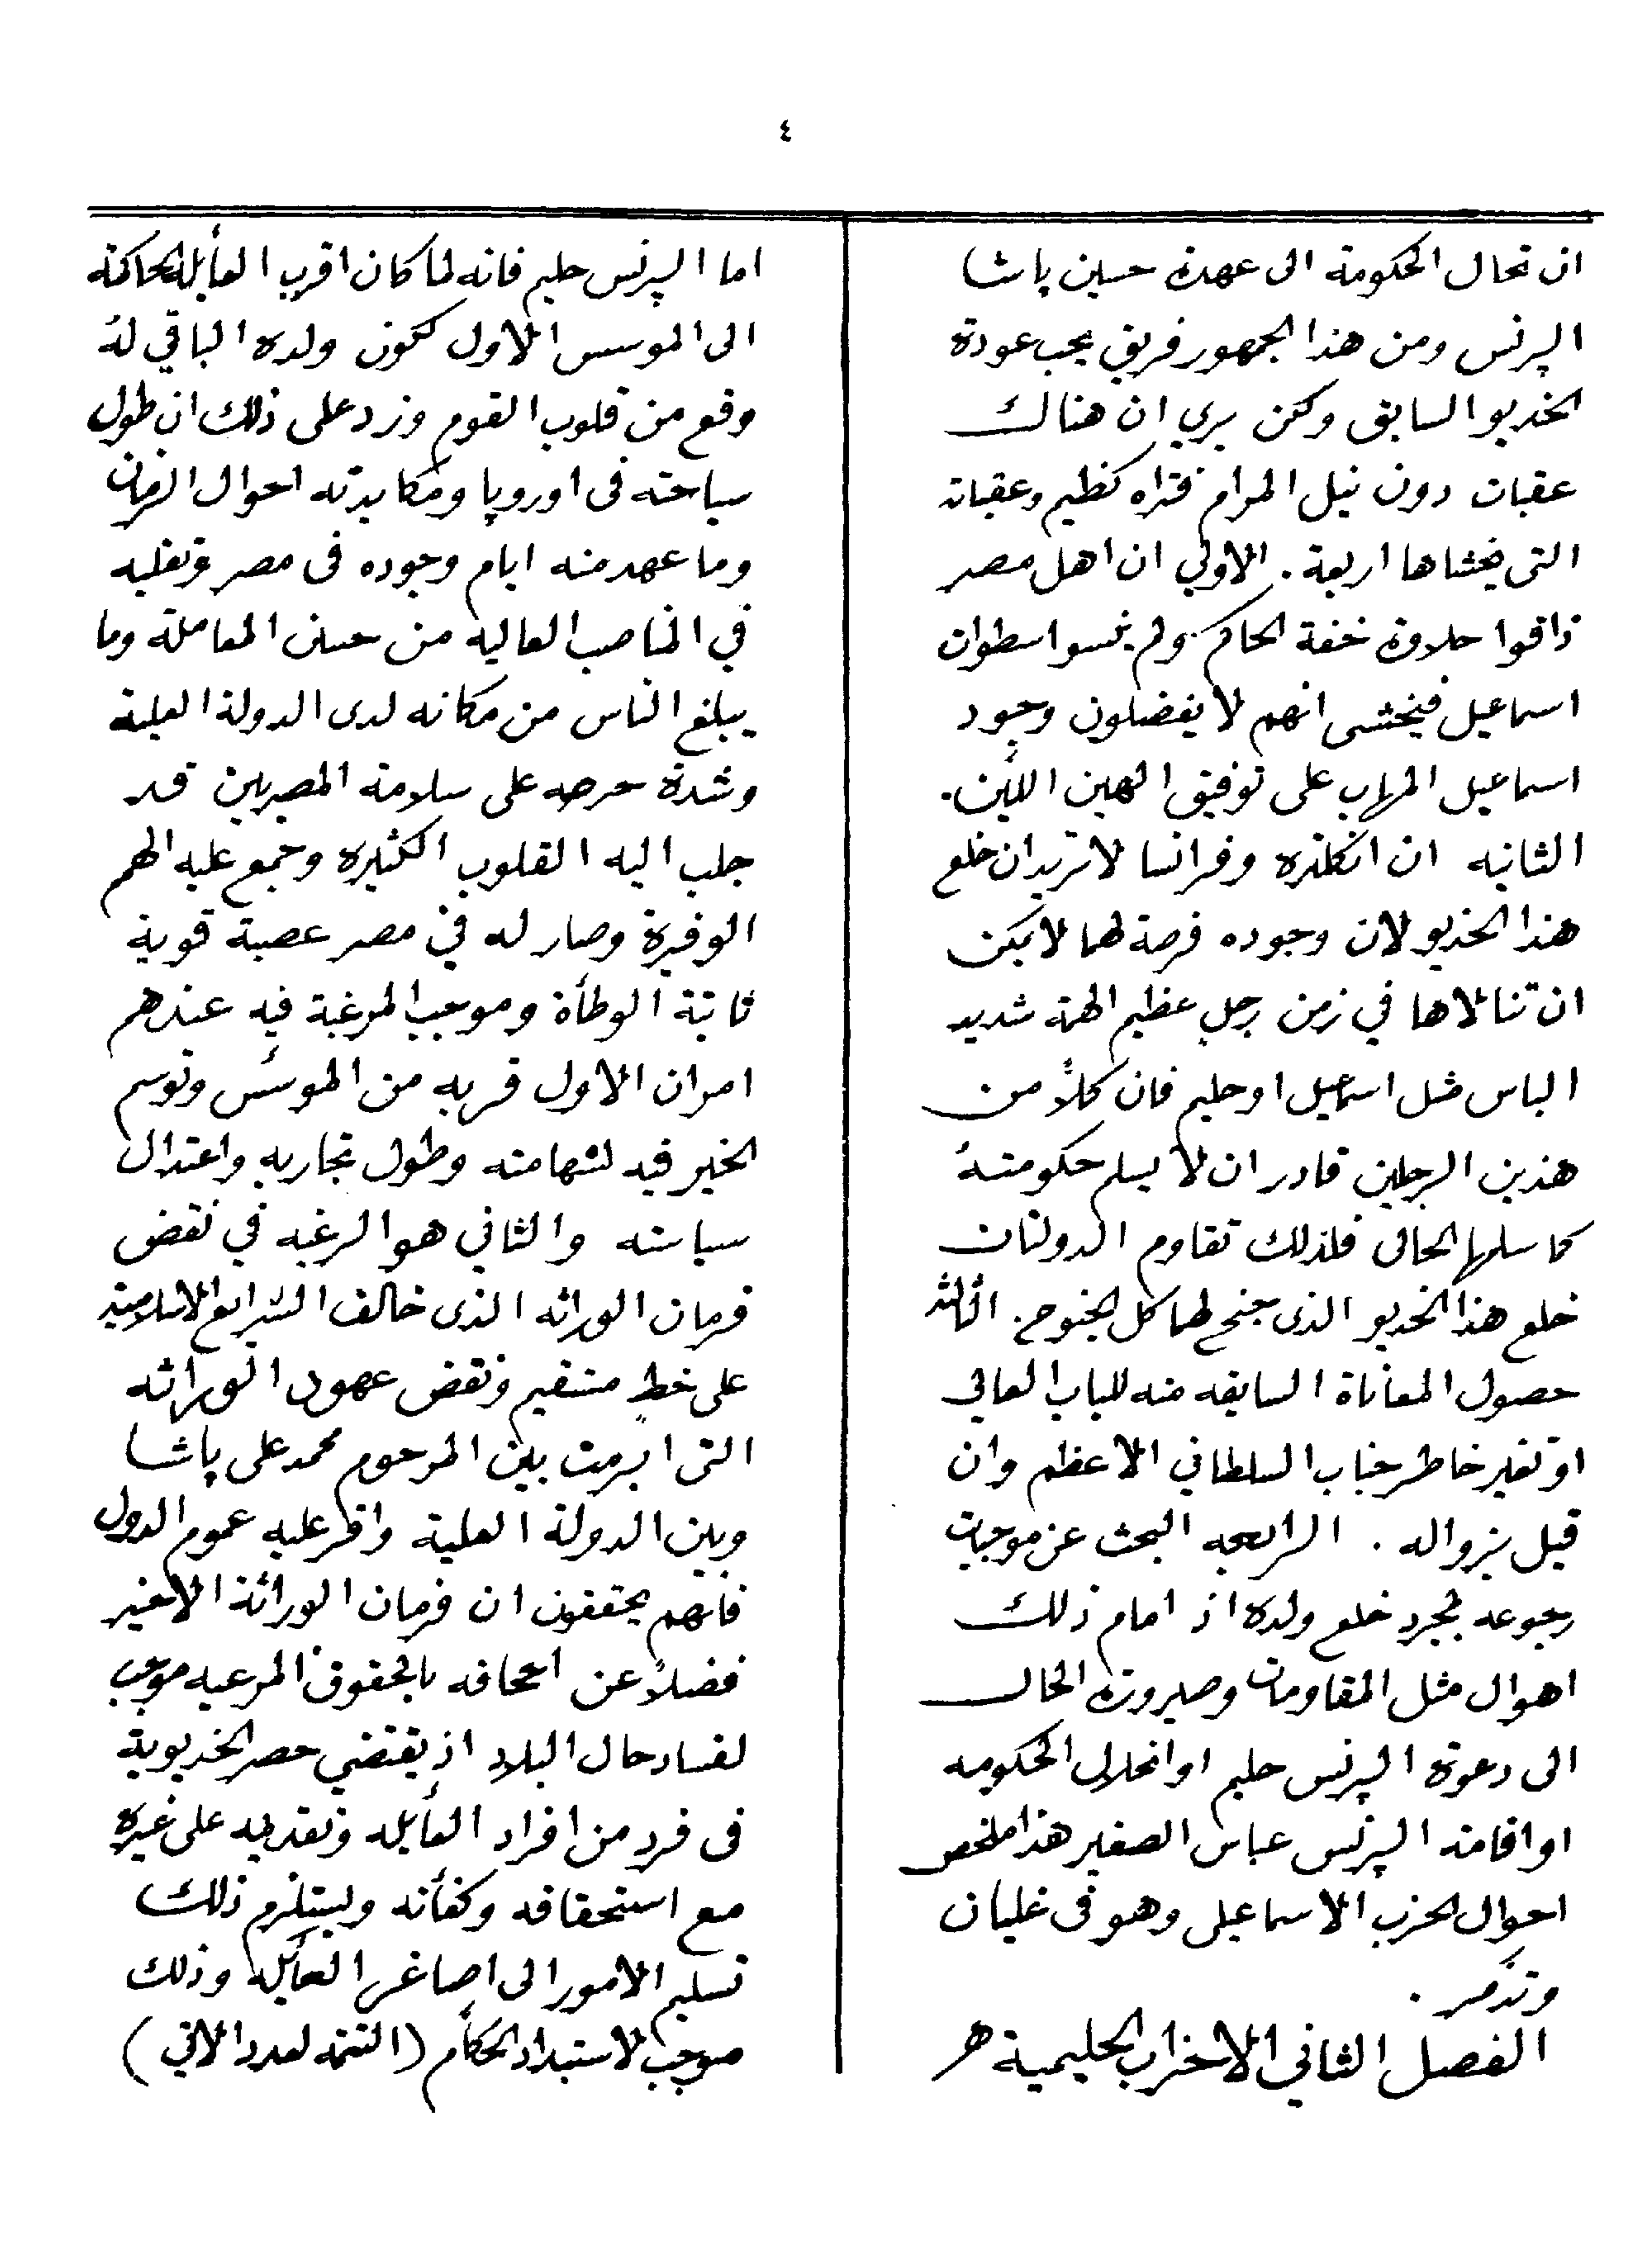 ٤
ان تحال الحكومة الى عهدة حسين پاشا
الپرنس ومن هذا الجمهور فريق يحب عودة
الخديو السابق ولكن يرى ان هناك
عقبات دون نيل المرام فتراه كظيم وعقباته
التى يخشاها اربعة. الاولي ان اهل مصر
ذاقوا حلاوة خفة الحاكم ولم ينسوا سطوات
اسماعيل فيخشى انهم لا يفضلون وجود
اسماعيل المهاب على توفيق الهين اللين.
الثانيه ان انكلتره وفرانسا لا تريدان خلع
هذا الخديو لان وجوده فرصة لهما لا يمكن
ان تنالاها في زمن رجل عظيم الهمة شديد
الباس مثل اسماعيل او حليم فان كلاً من
هذين الرجلين قادر ان لا يسلم حكومتهُ
كما سلمها الحالى فلذلك تقاوم الدولتان
خلع هذا الخديو الذى جنح لهما كل الجنوح. الثالثة
حصول المعاناة السابقه منه للباب العالي
او تغير خاطر جناب السلطاني الاعظم وان
قيل بزواله . الرابعه البحث عن موجبات
رجوعه لمجرد خلع ولده اذ امام ذلك
اهوال مثل المقاومات وصيرورة الحال
الى دعوة الپرنس حليم او انحلال الحكومه
او اقامة الپرنس عباس الصغير هذا ملخص
احوال الحزب الاسماعيلى وهو فى غليان
وتذمر .
الفصل الثاني الاحزاب الحليمية هـ
اما الپرنس حليم فانه لما كان اقرب العأيلة الحاكمة
الى الموسس الاول لكون ولده الباقي لهُ
وقع من قلوب القوم وزد على ذلك ان طول
سياحته فى اوروپا ومكابدته احوال الزمان
وما عهد منه ايام وجوده فى مصر وتقلبه
في المناصب العاليه من حسن المعاملة وما
يبلغ الناس من مكانه لدى الدولة العلية
وشدة حرصه على سلامة المصريين قد
جلب اليه القلوب الكثيره وجمع عليه الهمم
الوفيرة وصار له في مصر عصبة قوية
ثابتة الوطأة وموجب الرغبة فيه عندهم
امران الاول قربه من الموسّس وتوسم
الخير فيه لشهامته وطول تجاربه واعتدال
سياسته والثاني هو الرغبه في نقض
فرمان الوراثه الذى خالف الشرايع الاسلامية
على خطٍ مستقيم ونقض عهود الوراثه
التى ابرمت بين المرحوم محمد على پاشا
وبين الدولة العلية واقر عليه عموم الدول
فانهم يحققون ان فرمان الوراثة الاخير
فضلاً عن اجحافه بالحقوق المرعيه موجب
لفساد حال البلاد اذ يقتضي حصر الخديوية
فى فردٍ من افراد العأيله وتقديمه على غيره
مع استحقاقه وكفأته ويستلزم ذلك
تسليم الامور الى اصاغر العأيله وذلك
موجب لاستبداد الحكام (التتمة لعدد الاتي)